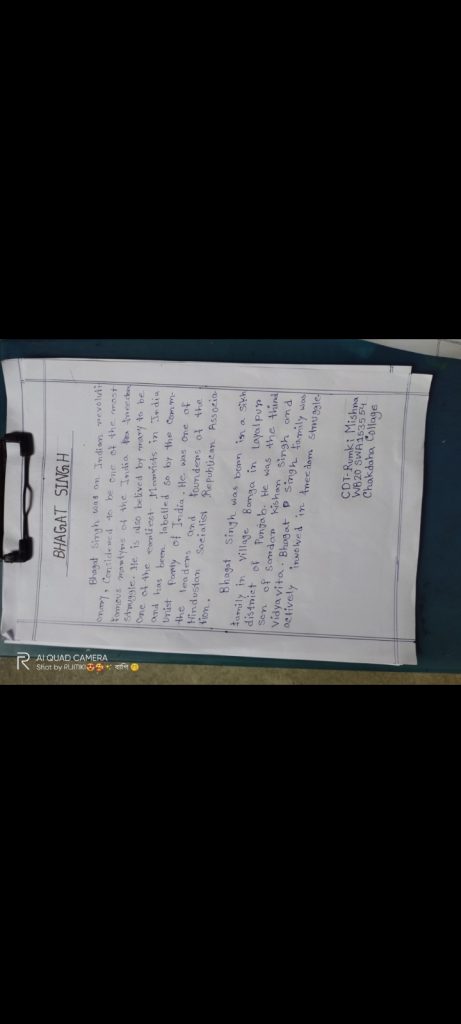 BHAGAT SINGH
Bhagat Singh was an Indian revoluti
onary, Considered to be one of the most
famous martyrs of the India for freedom
Struggle. He is also belived by many to be
One of the earliest Marxists in India
and has been labelled so by the Comm-
unist Party of India. He was one of
the leaders and founders of the
Hindustan Socialist Republican Associa
tion.
Bhagat Singh was born in a sikh
family in Village Banga in Layalpur
district of Punjab. He was the third
son of Sardar Kishan Singh and
Vidyavita. Bhagat Singh family was
actively involved in freedom struggle.
CDT- Rumki Mishra
WB20 SWA153554
Chakdaha Collage
AI QUAD CAMERA
Shot by RUMKI😍🥰 বাপি